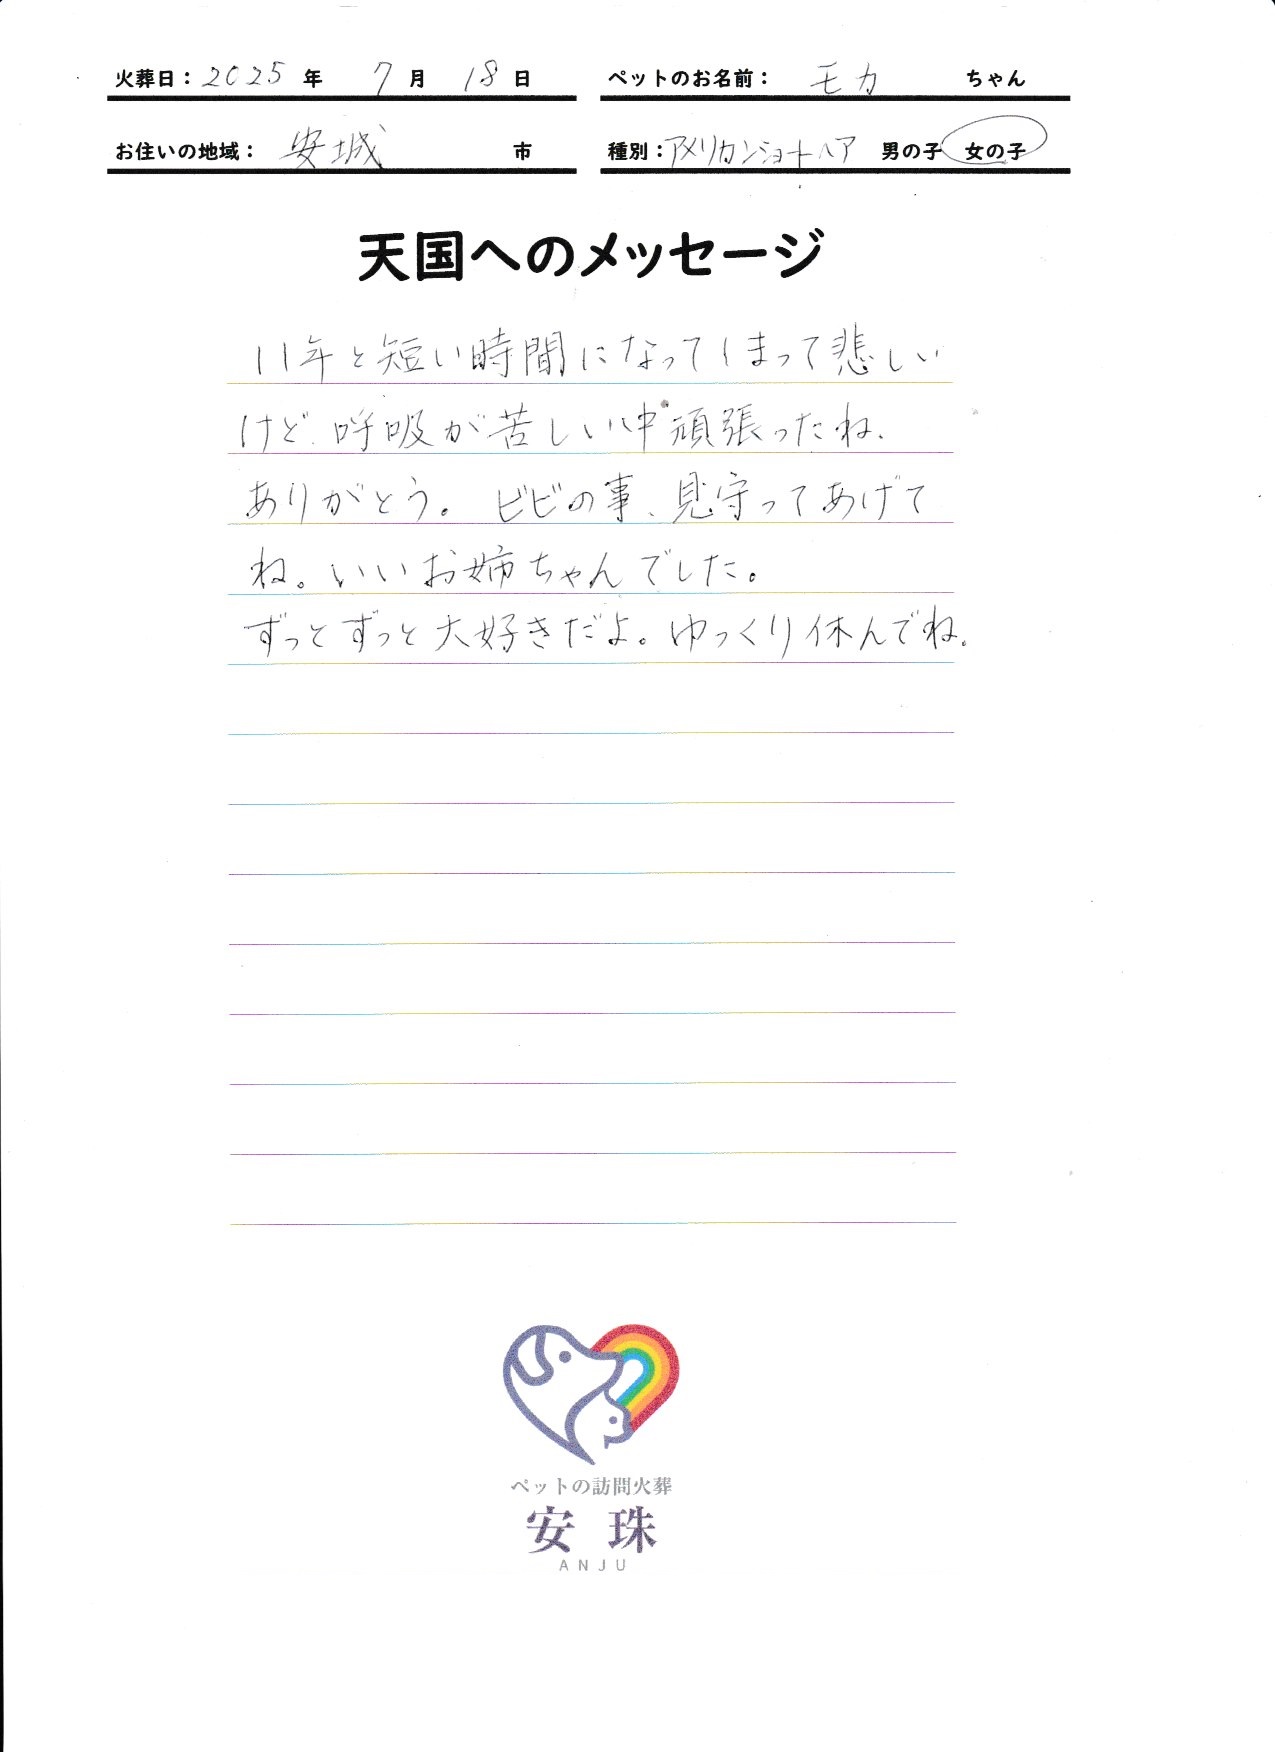 火葬日：2025年 7月 18日
ペットのお名前： モカ ちゃん
お住いの地域： 安城 市
種別：アメリカンショートヘア 男の子 女の子
天国へのメッセージ
11年と短い時間になってしまって悲しい
けど、呼吸が苦しい中頑張ったね、
ありがとう。ビビの事、見守ってあげて
ね。いいお姉ちゃんでした。
ずっとずっと大好きだよ。ゆっくり休んでね。
ペットの訪問火葬
安珠
ANJU